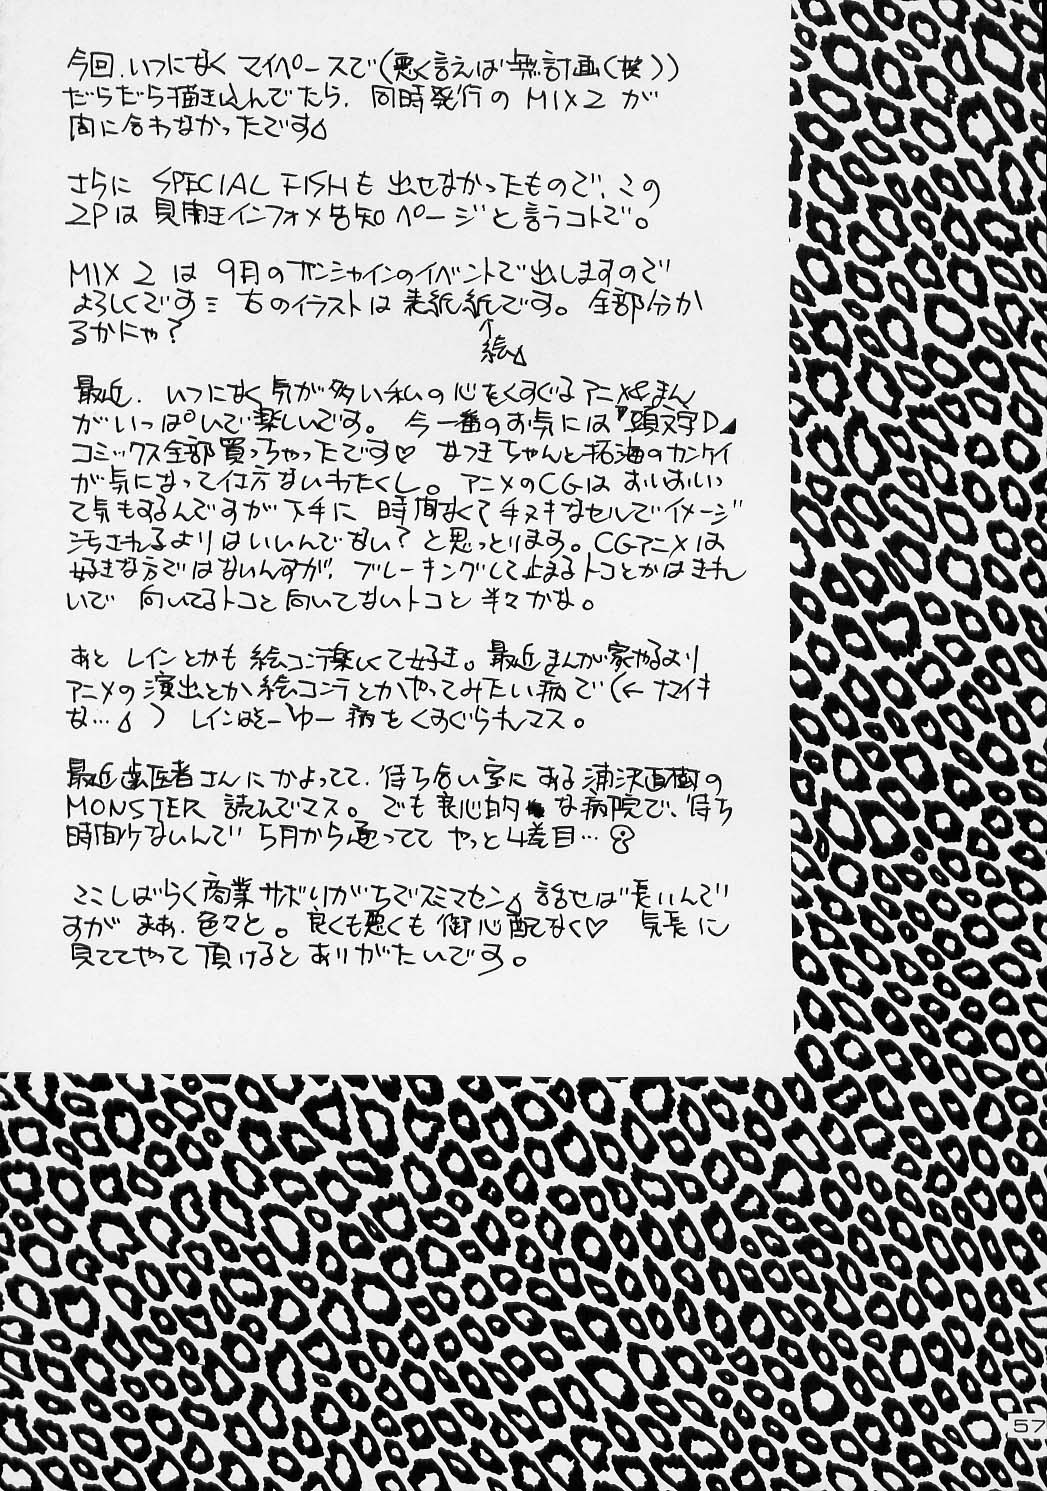 今回、いつになく マイペースで(悪く言えば無計画(笑))
だらだら描き込んでたら、同時発行の MIX 2 が
間に合わなかったです
さらに SPECIAL FISHも 出せなかったもので、この
2Pは 見開きインフォメ告知ページと言うコトで。
MIX 2 は 9月のサンシャインのイベントで出しますので
よろしくです 右のイラストは表紙絵です。全部分か
るかにゃ?
↑
絵
最近、いつになく気が多い私の心をくすぐるアニメ&まん
がいっぱいで楽しいです。今一番のお気には『頭文字D』
コミックス全部買っちゃったです♡ なつきちゃんと拓海のカンケイ
が気になって仕方ないわたくし。アニメのCGは おいおいっ
て気もするんですが 下手に 時間なくて手ヌキなセルでイメージ
汚されるよりはいいんでない?と思っとります。CGアニメは
好きな方ではないんすが、ブレーキングして止まるトコとかはきれ
いで 向いてるトコと向いてないトコと 半々かな。
あと レインとかも 絵コンテ楽しくて好き。最近まんが家やるより
アニメの演出とか絵コンテとかやってみたい病で(←ナマイキ
な…) レインはそーゆー病をくすぐられマス。
最近歯医者さんにかよってて、待ち合い室にある浦沢直樹の
MONSTER 読んでマス。でも良心的な病院で、待ち
時間少ないんで 5月から通ってて やっと4巻目…
ここしばらく商業サボりがちでスミマセン 話せば長いんで
すが まぁ、色々と。良くも悪くも御心配なく♡ 気長に
見ててやって頂けるとありがたいです。
57